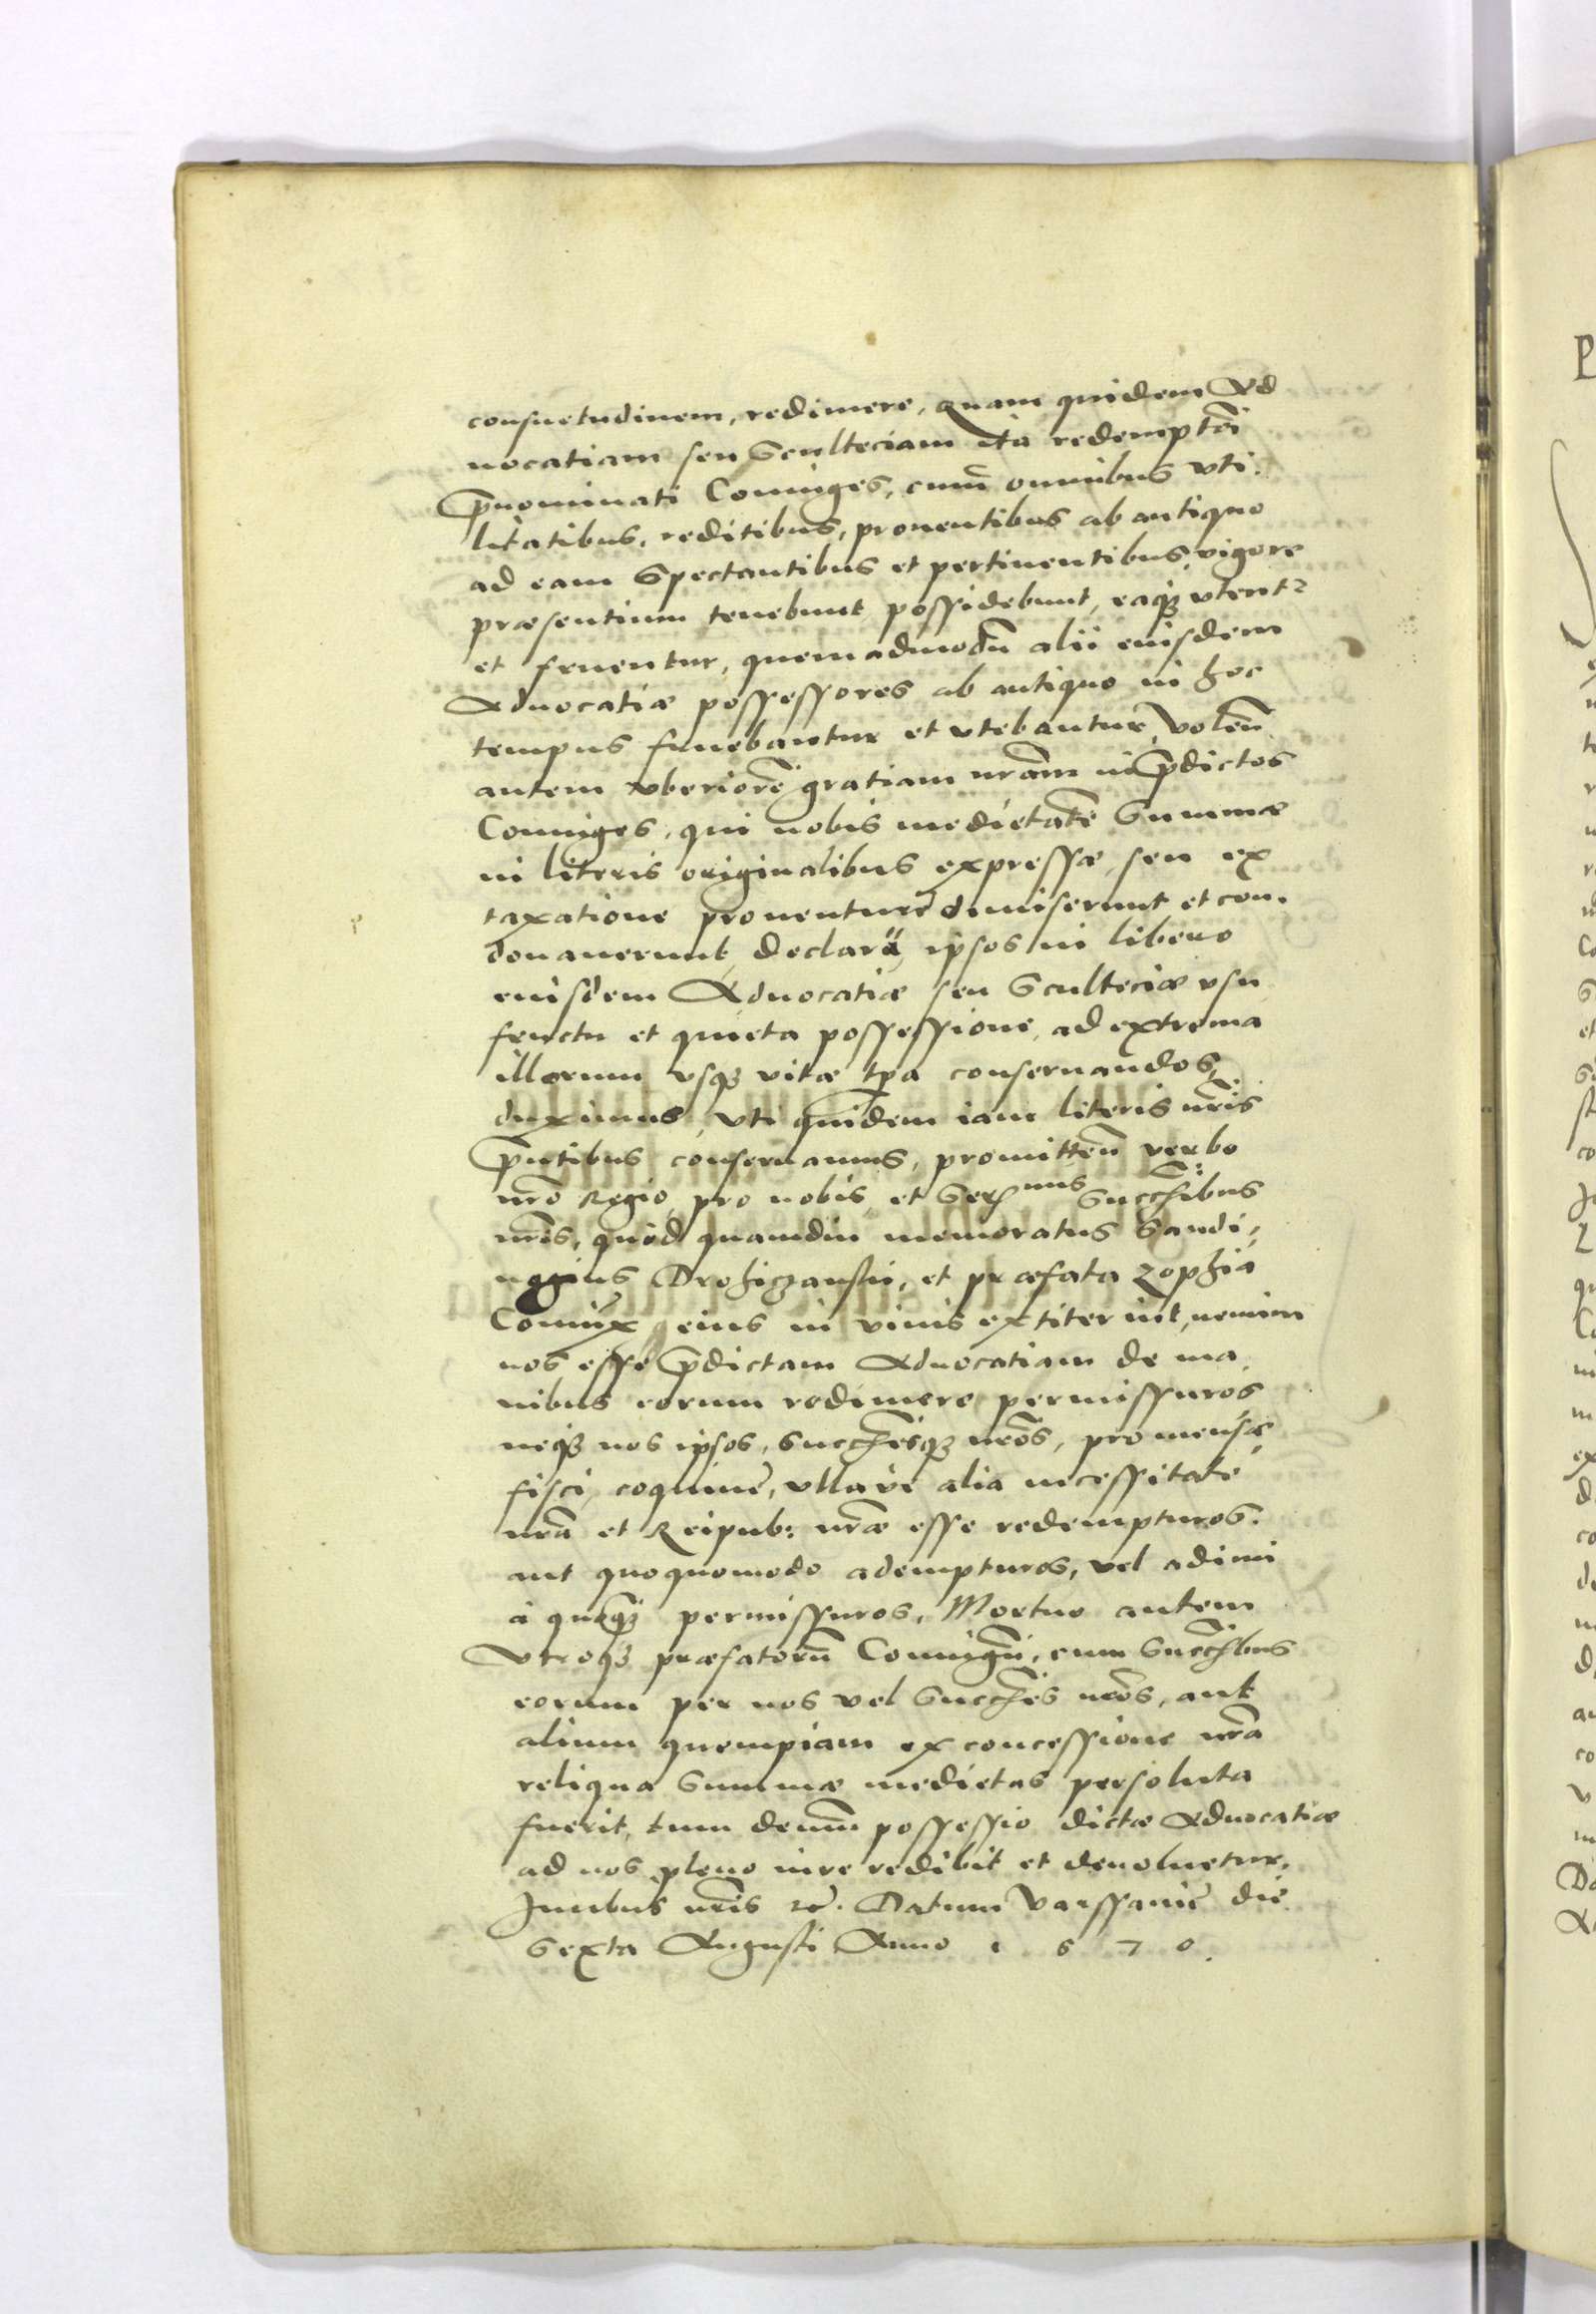 consuetudinem, redimere, quam quidem Ad
uocatiam seu Scultetiam ita redemptã
p̃nominati Coniuges, cum omnibus vti.
litatibus, reditibus, prouentibus ab antiquo
ad eam spectantibus et pertinentibus, vigore
præsentium tenebunt possidebunt, eaqʒ vtent
et fruentur, quemadmodũ alii eiusdem
Aduocatiæ possessores ab antiquo in hoc
tempus fruebantur et vtebantur, Volen̄
autem vberiorẽ gratiam nr̃am in p̃dictos
Coniuges, qui nobis medietatẽ Summæ
in literis originalibus expressæ, seu ex
taxatione prouenturę dimiserunt et con.
donauerunt, declarã, ipsos in libero
eiusdem Aduocatiæ seu Scultetiæ vsu
fructu et quieta possessione, ad extrema
illorum vsqʒ vitæ tp̃a conseruandos,
duximus, vti quidem iam literis nr̃is
p̃ntibus conseruamus, promitten̄ verbo
nr̃o Regio, pro nobis, et Ser mis Succh̃ibus
nr̃is, quòd quamdiu memoratus Sandi,
uogius Drohiczanski, et præfata Zophia
Coniux eius in viuis extiterint, nemini
nos esse p̃dictam Aduocatiam de ma
nibus eorum redimere permissuros
neqʒ nos ipsos, succh̃esqʒ nr̃os, pro mensæ
fisci, coquinę, vllaue alia necessitate
nr̃a et Reipub: nr̃æ esse redempturos.
aut quoquomodo adempturos, vel adimi
à quoqʒ permissuros, Mortuo autem
Vtroqʒ præfatorũ Coniugũ, cum Succh̃ibus
eorum per nos vel Succh̃es nr̃os, aut
alium quempiam ex concessione nr̃a
reliqua Summæ medietas persoluta
fuerit, tum demum possessio dictæ Aduocatiæ
ad nos pleno iure redibit et deuoluetur.
Iuribus nr̃is rc̃. Datum Varssauię die
Sexta Augusti Anno 1 5 7 0.